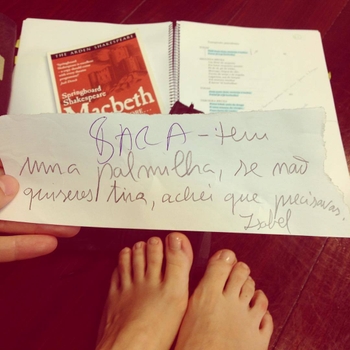 THE ARDEN SHAKESPEARE
Springboard
Shakespeare
Macbeth
SARA - tem
uma palmilha, se não
quiseres tira, achei que precisavas.
Isabel